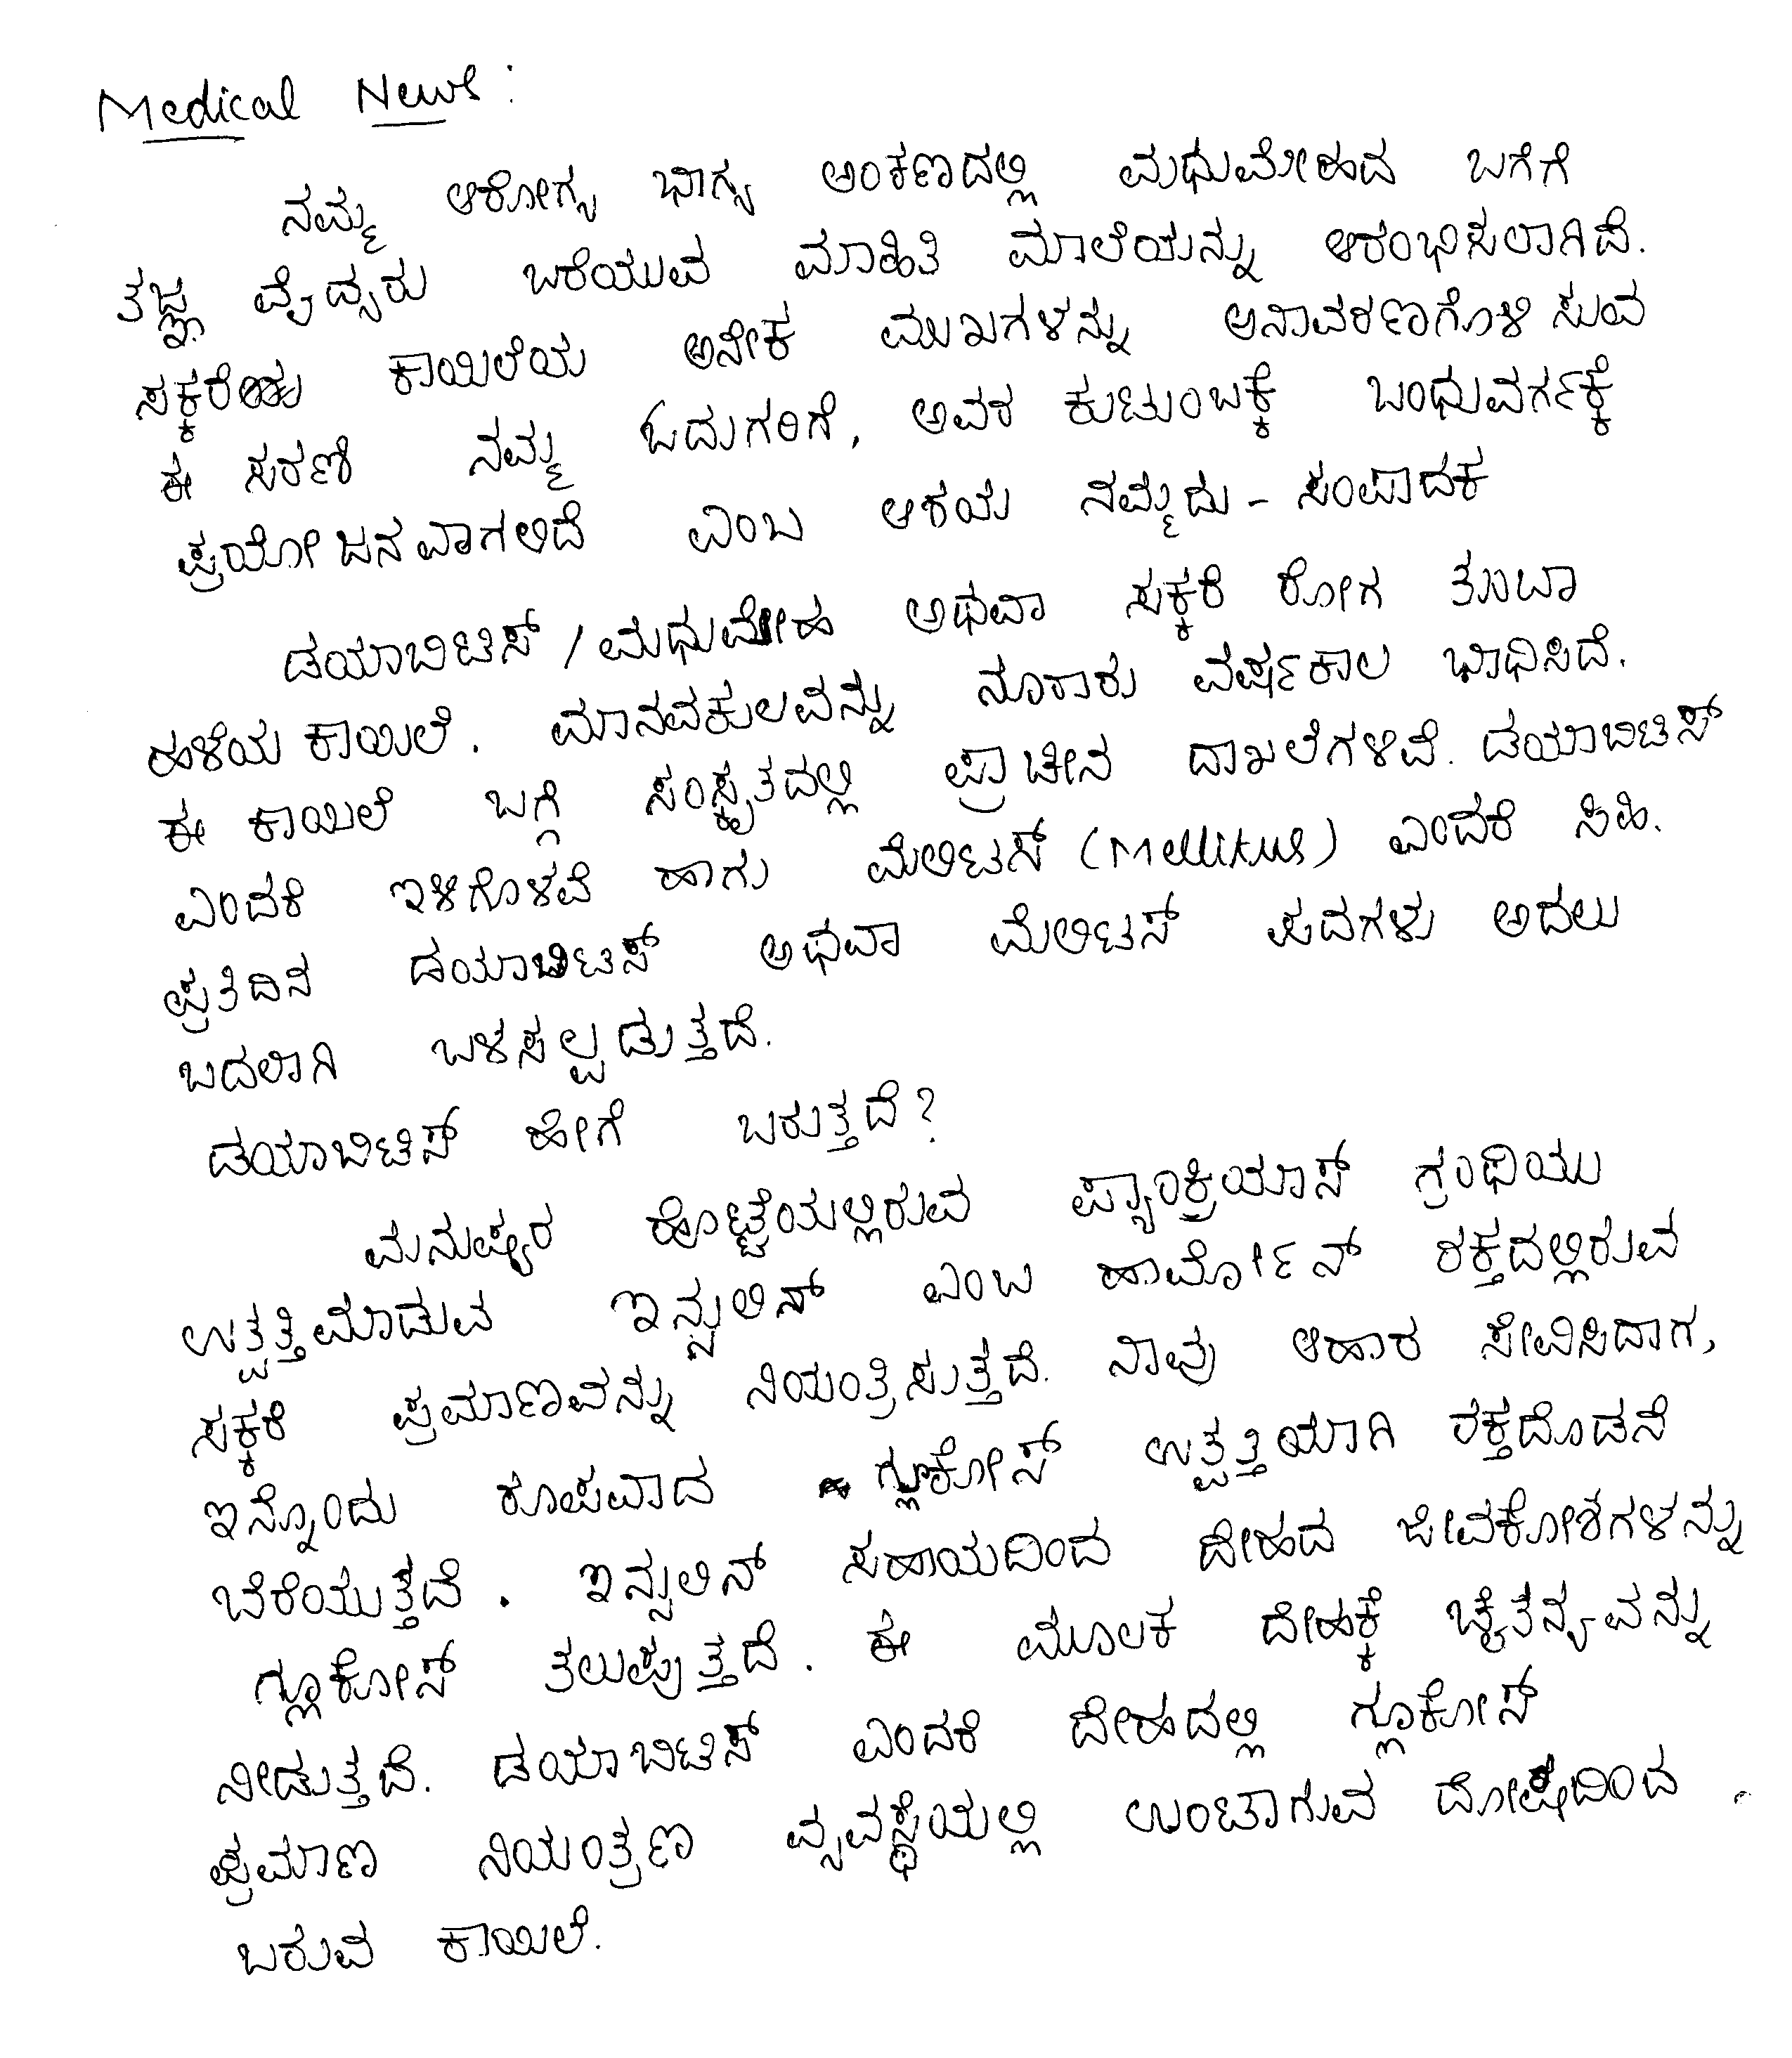 Medical News:
ನಮ್ಮ ಆರೋಗ್ಯ ಭಾಗ್ಯ ಅಂಕಣದಲ್ಲಿ ಮಧುಮೇಹದ ಬಗೆಗೆ
ತಜ್ಞ ವೈದ್ಯರು ಬರೆಯುವ ಮಾಹಿತಿ ಮಾಲೆಯನ್ನು ಆರಂಭಿಸಲಾಗಿದೆ.
ಸಕ್ಕರೆಯ ಕಾಯಿಲೆಯ ಅನೇಕ ಮುಖಗಳನ್ನು ಅನಾವರಣಗೊಳಿಸುವ
ಈ ಸರಣಿ ನಮ್ಮ ಓದುಗರಿಗೆ, ಅವರ ಕುಟುಂಬಕ್ಕೆ ಬಂಧುವರ್ಗಕ್ಕೆ
ಪ್ರಯೋಜನವಾಗಲಿದೆ ಎಂಬ ಆಶಯ ನಮ್ಮದು - ಸಂಪಾದಕ
ಡಯಾಬಿಟಿಸ್ / ಮಧುಮೇಹ ಅಥವಾ ಸಕ್ಕರೆ ರೋಗ ತುಂಬಾ
ಹಳೆಯ ಕಾಯಿಲೆ. ಮಾನವಕುಲವನ್ನು ನೂರಾರು ವರ್ಷಕಾಲ ಭಾಧಿಸಿದೆ.
ಈ ಕಾಯಿಲೆ ಬಗ್ಗೆ ಸಂಸ್ಕೃತದಲ್ಲಿ ಪ್ರಾಚೀನ ದಾಖಲೆಗಳಿವೆ. ಡಯಾಬಿಟಿಸ್
ಎಂದರೆ ಇಳಿಗೊಳವೆ ಹಾಗು ಮೆಲಿಟಸ್ (Mellitus) ಎಂದರೆ ಸಿಹಿ.
ಪ್ರತಿದಿನ ಡಯಾಬಿಟಿಸ್ ಅಥವಾ ಮೆಲಿಟಸ್ ಪದಗಳು ಅದಲು
ಬದಲಾಗಿ ಬಳಸಲ್ಪಡುತ್ತದೆ.
ಡಯಾಬಿಟಿಸ್ ಹೇಗೆ ಬರುತ್ತದೆ?
ಮನುಷ್ಯರ ಹೊಟ್ಟೆಯಲ್ಲಿರುವ ಪ್ಯಾಂಕ್ರಿಯಾಸ್ ಗ್ರಂಥಿಯು
ಉತ್ಪತ್ತಿಮಾಡುವ ಇನ್ಸುಲಿನ್ ಎಂಬ ಹಾರ್ಮೋನ್ ರಕ್ತದಲ್ಲಿರುವ
ಸಕ್ಕರೆ ಪ್ರಮಾಣವನ್ನು ನಿಯಂತ್ರಿಸುತ್ತದೆ. ನಾವು ಆಹಾರ ಸೇವಿಸಿದಾಗ,
ಇನ್ನೊಂದು ರೂಪವಾದ ಗ್ಲೂಕೋಸ್ ಉತ್ಪತ್ತಿಯಾಗಿ ರಕ್ತದೊಡನೆ
ಬೆರೆಯುತ್ತದೆ. ಇನ್ಸುಲಿನ್ ಸಹಾಯದಿಂದ ದೇಹದ ಜೀವಕೋಶಗಳನ್ನು
ಗ್ಲೂಕೋಸ್ ತಲುಪುತ್ತದೆ. ಈ ಮೂಲಕ ದೇಹಕ್ಕೆ ಚೈತನ್ಯವನ್ನು
ನೀಡುತ್ತದೆ. ಡಯಾಬಿಟಿಸ್ ಎಂದರೆ ದೇಹದಲ್ಲಿ ಗ್ಲೂಕೋಸ್
ಪ್ರಮಾಣ ನಿಯಂತ್ರಣ ವ್ಯವಸ್ಥೆಯಲ್ಲಿ ಉಂಟಾಗುವ ದೋಷದಿಂದ
ಬರುವ ಕಾಯಿಲೆ.